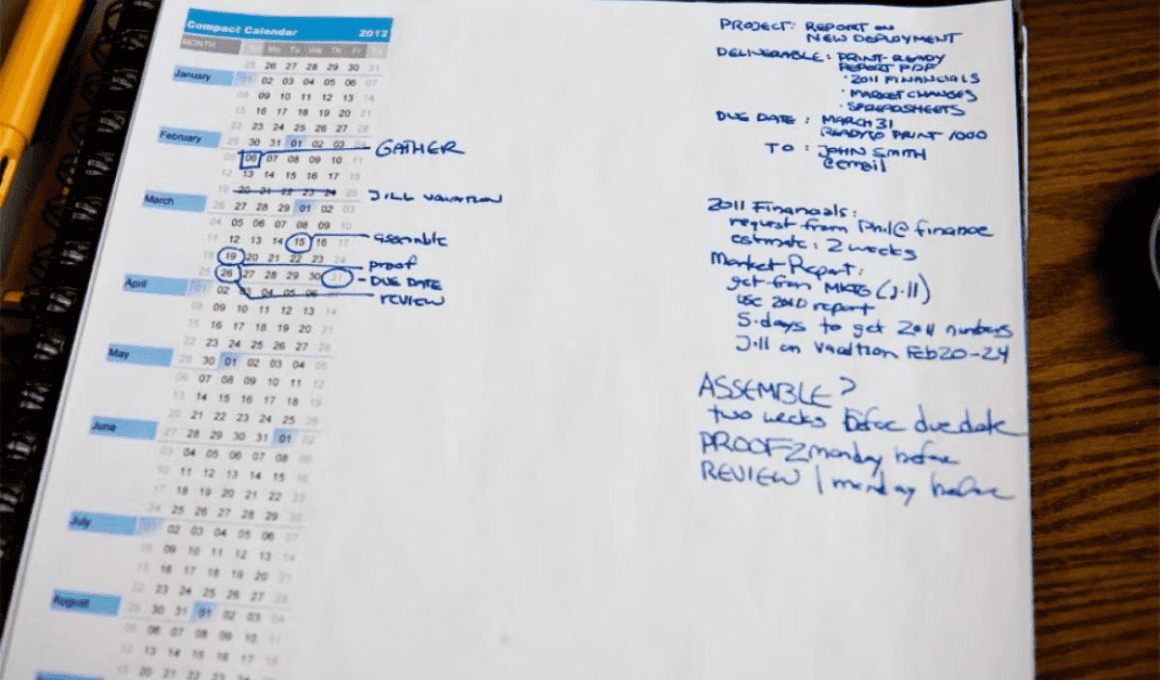 Compact Calendar 2012
MONTH Su Mo Tu We Th Fr Sa
25 26 27 28 29 30 31
January 01 02 03 04 05 06 07
08 09 10 11 12 13 14
15 16 17 18 19 20 21
22 23 24 25 26 27 28
February 29 30 31 01 02 03 04
GATHER
05 06 07 08 09 10 11
12 13 14 15 16 17 18
19 20 21 22 23 24 25
JILL VACATION
March 26 27 28 29 01 02 03
04 05 06 07 08 09 10
11 12 13 14 15 16 17
assemble
18 19 20 21 22 23 24
proof
25 26 27 28 29 30 31
DUE DATE
April 01 02 03 04 05 06 07
REVIEW
08 09 10 11 12 13 14
15 16 17 18 19 20 21
22 23 24 25 26 27 28
May 29 30 01 02 03 04 05
06 07 08 09 10 11 12
13 14 15 16 17 18 19
20 21 22 23 24 25 26
June 27 28 29 30 31 01 02
03 04 05 06 07 08 09
10 11 12 13 14 15 16
17 18 19 20 21 22 23
24 25 26 27 28 29 30
July 02 03 04 05 06 07
08 09 10 11 12 13 14
15 16 17 18 19 20 21
22 23 24 25 26 27 28
August 29 30 31 01 02 03 04
05 06 07 08 09 10 11
12 13 14 15 16 17 18
20 21 22 23 24
PROJECT: REPORT ON
NEW DEPLOYMENT
DELIVERABLE: PRINT-READY
REPORT PDF
· 2011 FINANCIALS
· MARKET CHANGES
· SPREADSHEETS
DUE DATE: MARCH 31
READY TO PRINT 1000
TO: JOHN SMITH
@email
2011 Financials:
request from Phil@finance
estimate: 2 weeks
Market Report:
get from MKTG (Jill)
use 2010 report
5-days to get 2011 numbers
Jill on vacation Feb 20-24
ASSEMBLE?
two weeks before due date
PROOF 2 monday before
REVIEW 1 monday before